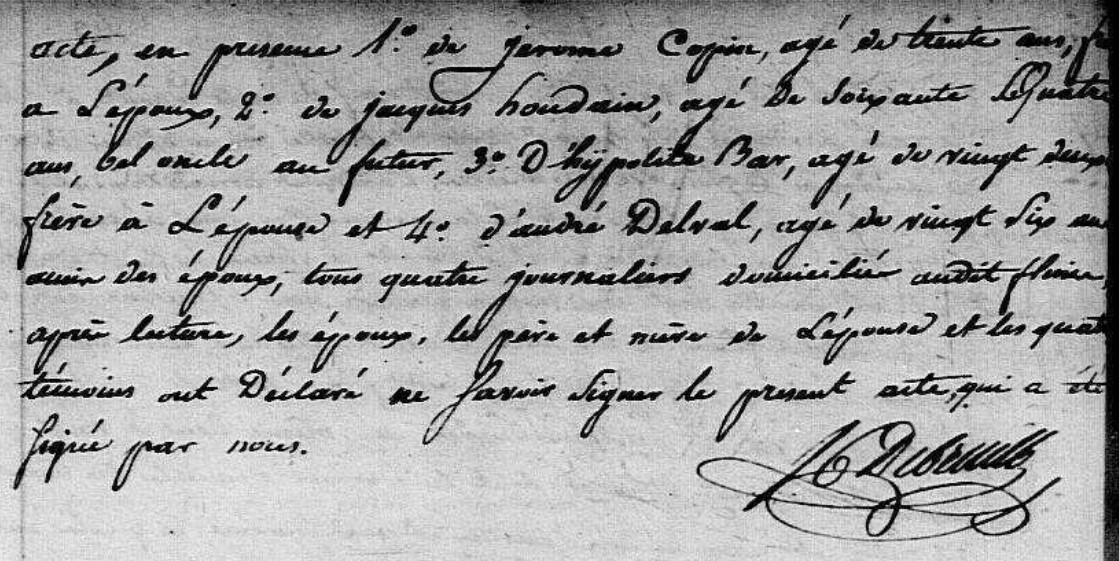 acte, en presence 1.° de jerome Copin, agé de trente ans,
a L'époux, 2.° de jacques houdain, agé De Soixante Quatre
ans, bel oncle au futur, 3.° D'hÿpolite Bar, agé de vingt deux
frère à L'épouse et 4.° d'andré Delval, agé de vingt Six an
amis des époux, tous quatre journaliers domicilié audit flines,
après lecture, les époux, les père et mère de L'épouse et les quatre
témoins ont Déclaré ne Savoir Signer le present acte, qui a été
Signé par nous.